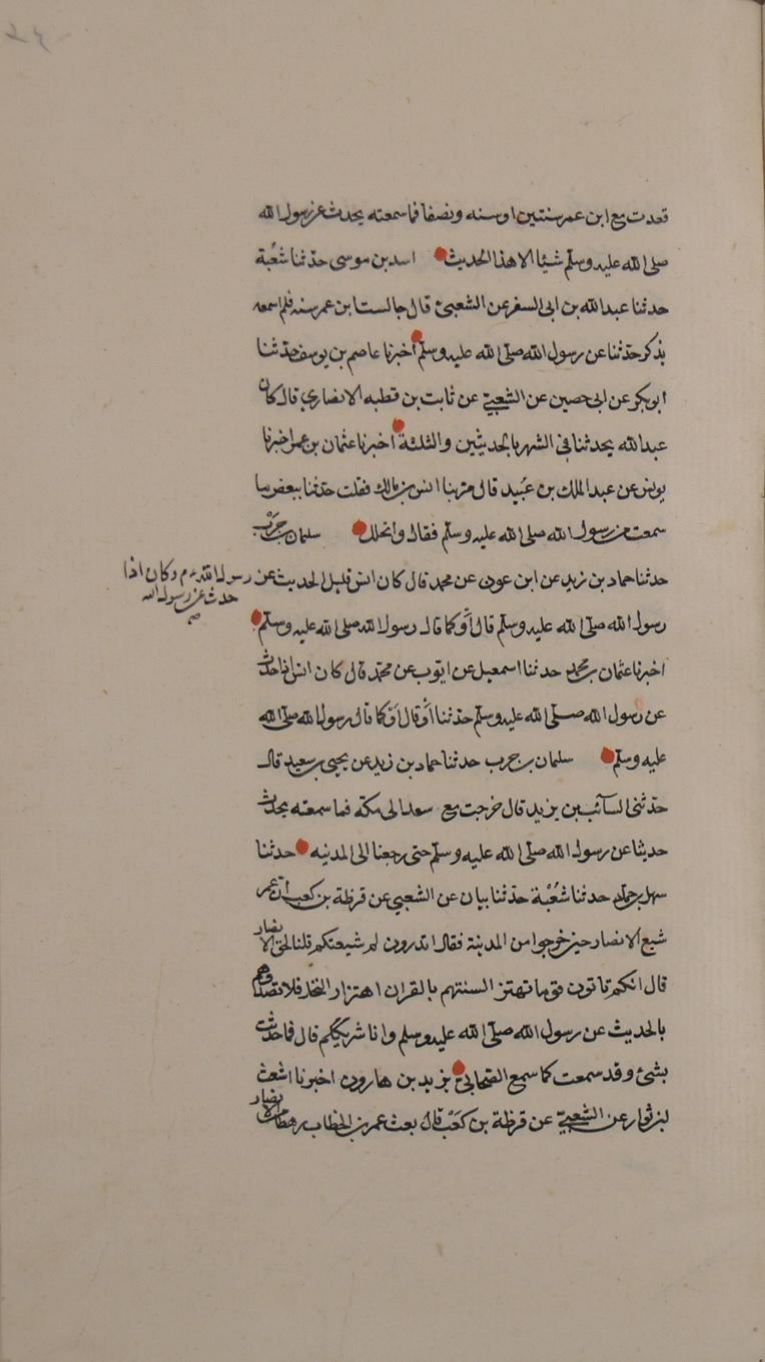 قعدت مع ابن عمر سنتين او سنه ونصفا فما سمعته يحدث عن رسول الله
صلى الله عليه وسلم شيئا الا هذا الحديث اسد بن موسى حدثنا شعبة
حدثنا عبدالله بن ابى السفر عن الشعبى قال جالست ابن عمر سنه فلم اسمعه
يذكر حدثنا عن رسول الله صلى الله عليه وسلم اخبرنا عاصم بن يوسف حدثنا
ابو بكر عن ابى حصين عن الشعبى عن ثابت بن قطبه الانصاري قال كان
عبدالله يحدثنا فى الشهر بالحديثين والثلثة اخبرنا عثمان بن عمر اخبرنا
يونس عن عبد الملك بن عبيد قال مر بنا انس بن مالك فقلت حدثنا ببعض ما
سمعت من رسول الله صلى الله عليه وسلم فقال وانحلل سلمان بن حرب
حدثنا حماد بن زيد عن ابن عون عن محمد قال كان انس قليل الحديث عن رسول الله م وكان اذا
حدث عن رسول الله
رسول الله صلى الله عليه وسلم قال أو كما قال رسول الله صلى الله عليه وسلم
اخبرنا عثمان بن محمد حدثنا اسمعيل عن ايوب عن محمد قال كان انس اذا حدث
عن رسول الله صلى الله عليه وسلم حدثنا أو قال أو كما قال رسول الله صلى الله
عليه وسلم سلمان بن حرب حدثنا حماد بن زيد عن يحيى بن سعيد قال
حدثنى السائب بن يزيد قال خرجت مع سعد الى مكه فما سمعته يحدث
حديثا عن رسول الله صلى الله عليه وسلم حتى رجعنا الى المدينه حدثنا
سهل بن حماد حدثنا شعبة حدثنا بيان عن الشعبي عن قرظة بن كعب ان عمر
شيع الانصار حين خرجوا من المدينة فقال اتدرون لم شيعتكم قلنا لحق الانصار
قال انكم تاتون قوما تهتز السنتهم بالقران اهتزاز النخل فلا تصدوهم
بالحديث عن رسول الله صلى الله عليه وسلم وانا شريككم قال فما حدثت
بشئ وقد سمعت كما سمع اصحابى يزيد بن هارون اخبرنا اشعث
بن سوار عن الشعبي عن قرظة بن كعب قال بعث عمر بن الخطاب رهطا من الانصار